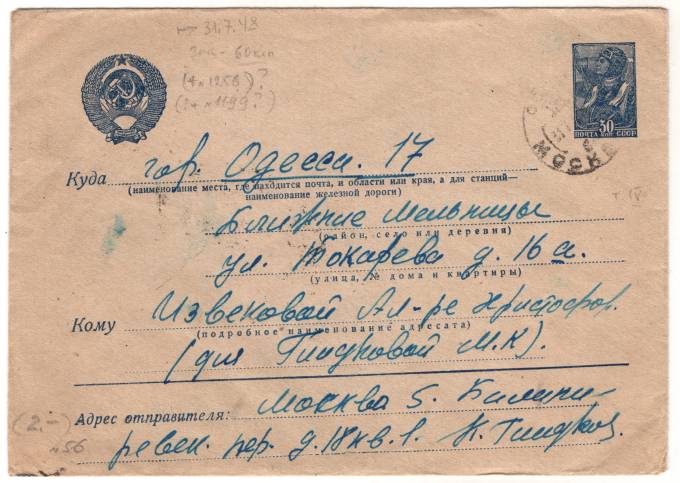 31.7.48
60 коп
(4 н 1258)?
(24 н 1199?)
30
ПОЧТА КОП СССР
МОСКВ
Куда гор. Одесса. 17
(наименование места, где находится почта, и области или края, а для станций—
наименование железной дороги)
Ближние Мельницы
(район, село или деревня)
ул. Токарева д. 16 а.
(улица, № дома и квартиры)
Кому Извековой Ал-ре Христофор.
(подробное наименование адресата)
(для Гнидковой М.К).
Адрес отправителя: Москва 5. Балакирев
пер. д. 18 кв. 1.
(2.-)
№56